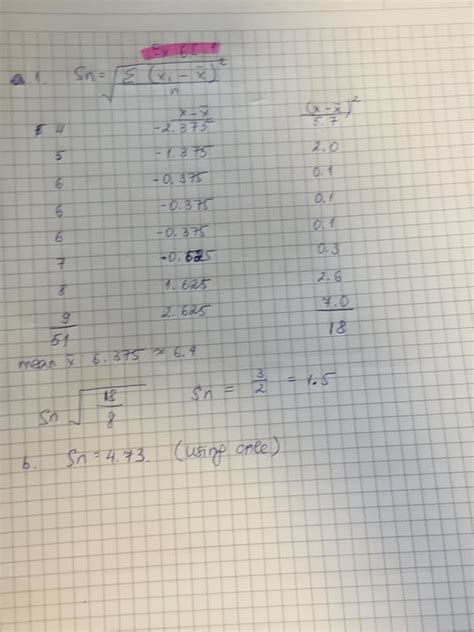 Ex 6E 1
a 1. Sn = √ Σ (x₁ - x̄)² / n
x - x̄ (x - x̄)²
4 -2.375 5.7
5 -1.375 2.0
6 -0.375 0.1
6 -0.375 0.1
6 -0.375 0.1
7 -0.625 0.3
8 1.625 2.6
9 2.625 7.0
51 18
mean x̄ 6.375 ≈ 6.4
Sn √ 18 / 8 Sn = 3 / 2 = 1.5
b. Sn = 4.73. (using calc)